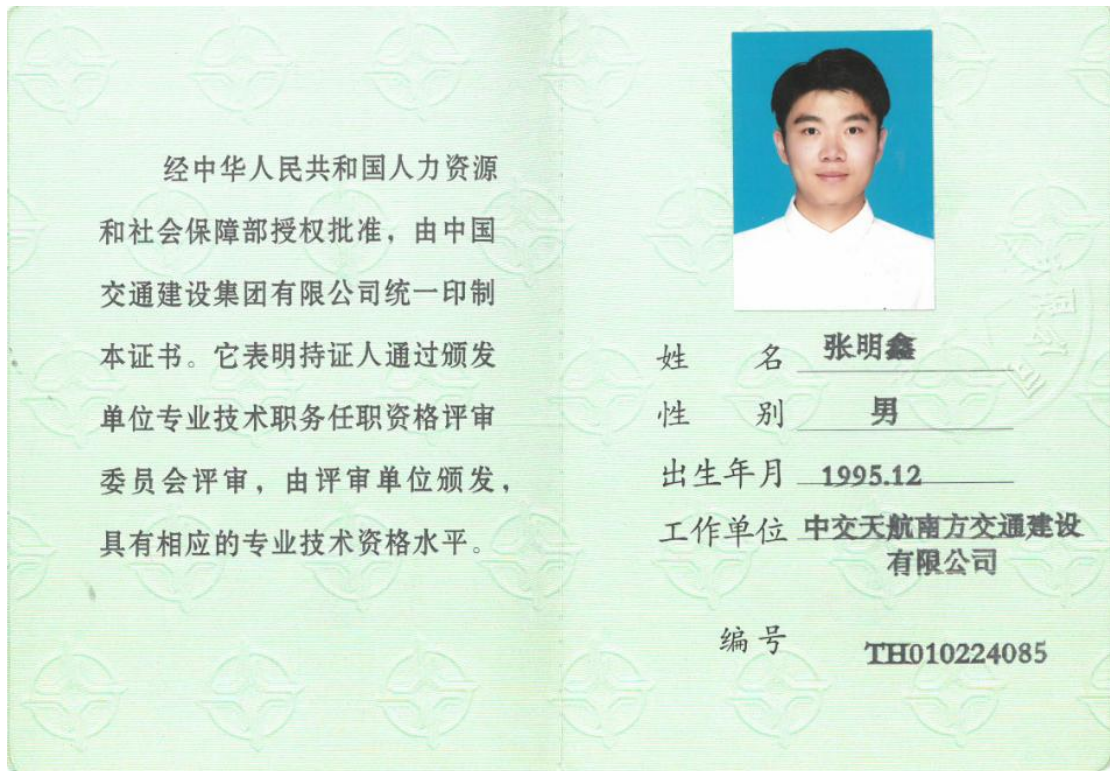 经中华人民共和国人力资源
和社会保障部授权批准，由中国
交通建设集团有限公司统一印制
本证书。它表明持证人通过颁发
单位专业技术职务任职资格评审
委员会评审，由评审单位颁发，
具有相应的专业技术资格水平。
姓 名 张明鑫
性 别 男
出生年月 1995.12
工作单位 中交天航南方交通建设
有限公司
编号 TH010224085